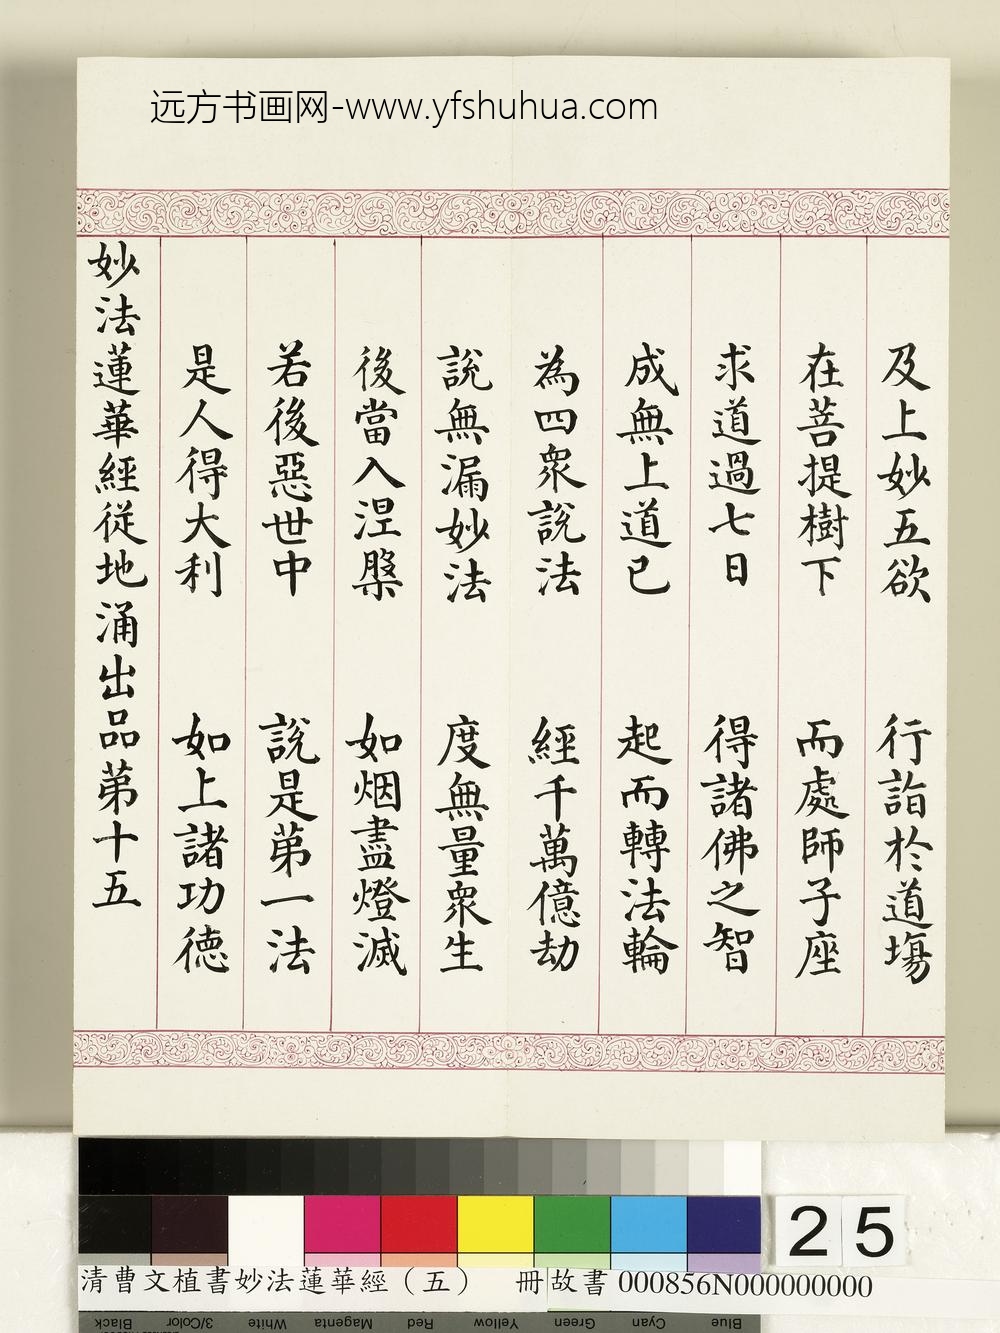 远方书画网-www.yfshuhua.com
及上妙五欲 行詣於道場
在菩提樹下 而處師子座
求道過七日 得諸佛之智
成無上道已 起而轉法輪
為四衆說法 經千萬億劫
說無漏妙法 度無量衆生
後當入涅槃 如烟盡燈滅
若後惡世中 說是第一法
是人得大利 如上諸功德
妙法蓮華經從地涌出品第十五
25
清曹文植書妙法蓮華經（五） 冊 故書000856N000000000
Black 3/Color White Magenta Red Yellow Green Cyan Blue